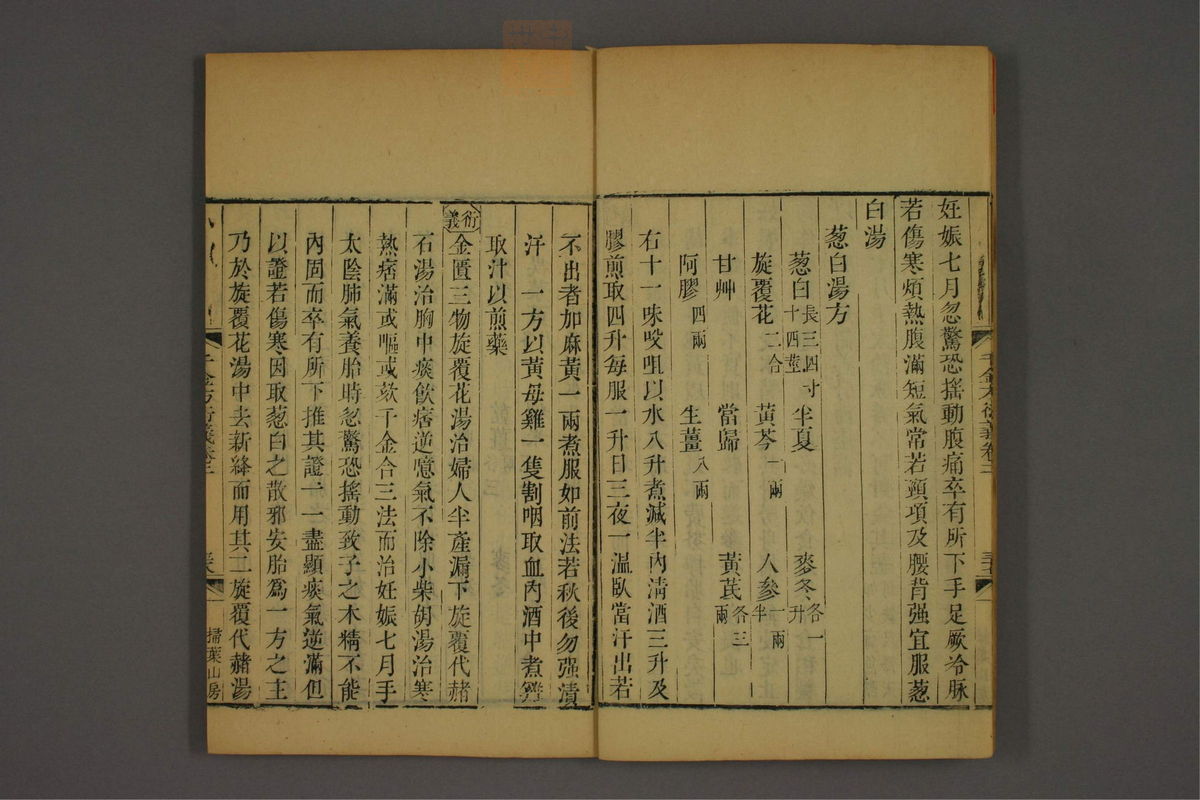 妊娠七月忽驚恐搖動腹痛卒有所下手足厥冷脉
若傷寒煩熱腹滿短氣常若頸項及腰背强宜服葱
白湯
葱白湯方
葱白長三四寸十四莖 半夏 麥冬各一升
旋覆花二合 黃芩一兩 人參一兩半
甘艸 當歸 黃芪各三兩
阿膠四兩 生薑八兩
右十一味㕮咀以水八升煮減半內淸酒三升及
膠煎取四升每服一升日三夜一溫臥當汗出若
不出者加麻黃一兩煮服如前法若秋後勿强漬
汗 一方以黃母雞一隻割咽取血內酒中煮雞
取汁以煎藥
衍義
金匱三物旋覆花湯治婦人半產漏下旋覆代赭
石湯治胸中痰飮痞逆噫氣不除小柴胡湯治寒
熱痞滿或嘔或欬千金合三法而治妊娠七月手
太陰肺氣養胎時忽驚恐搖動致子之木精不能
內固而卒有所下推其證一一盡顯痰氣逆滿但
以證若傷寒因取葱白之散邪安胎爲一方之主
乃於旋覆花湯中去新絳而用其二旋覆代赭湯
千金方衍義卷二
掃葉山房